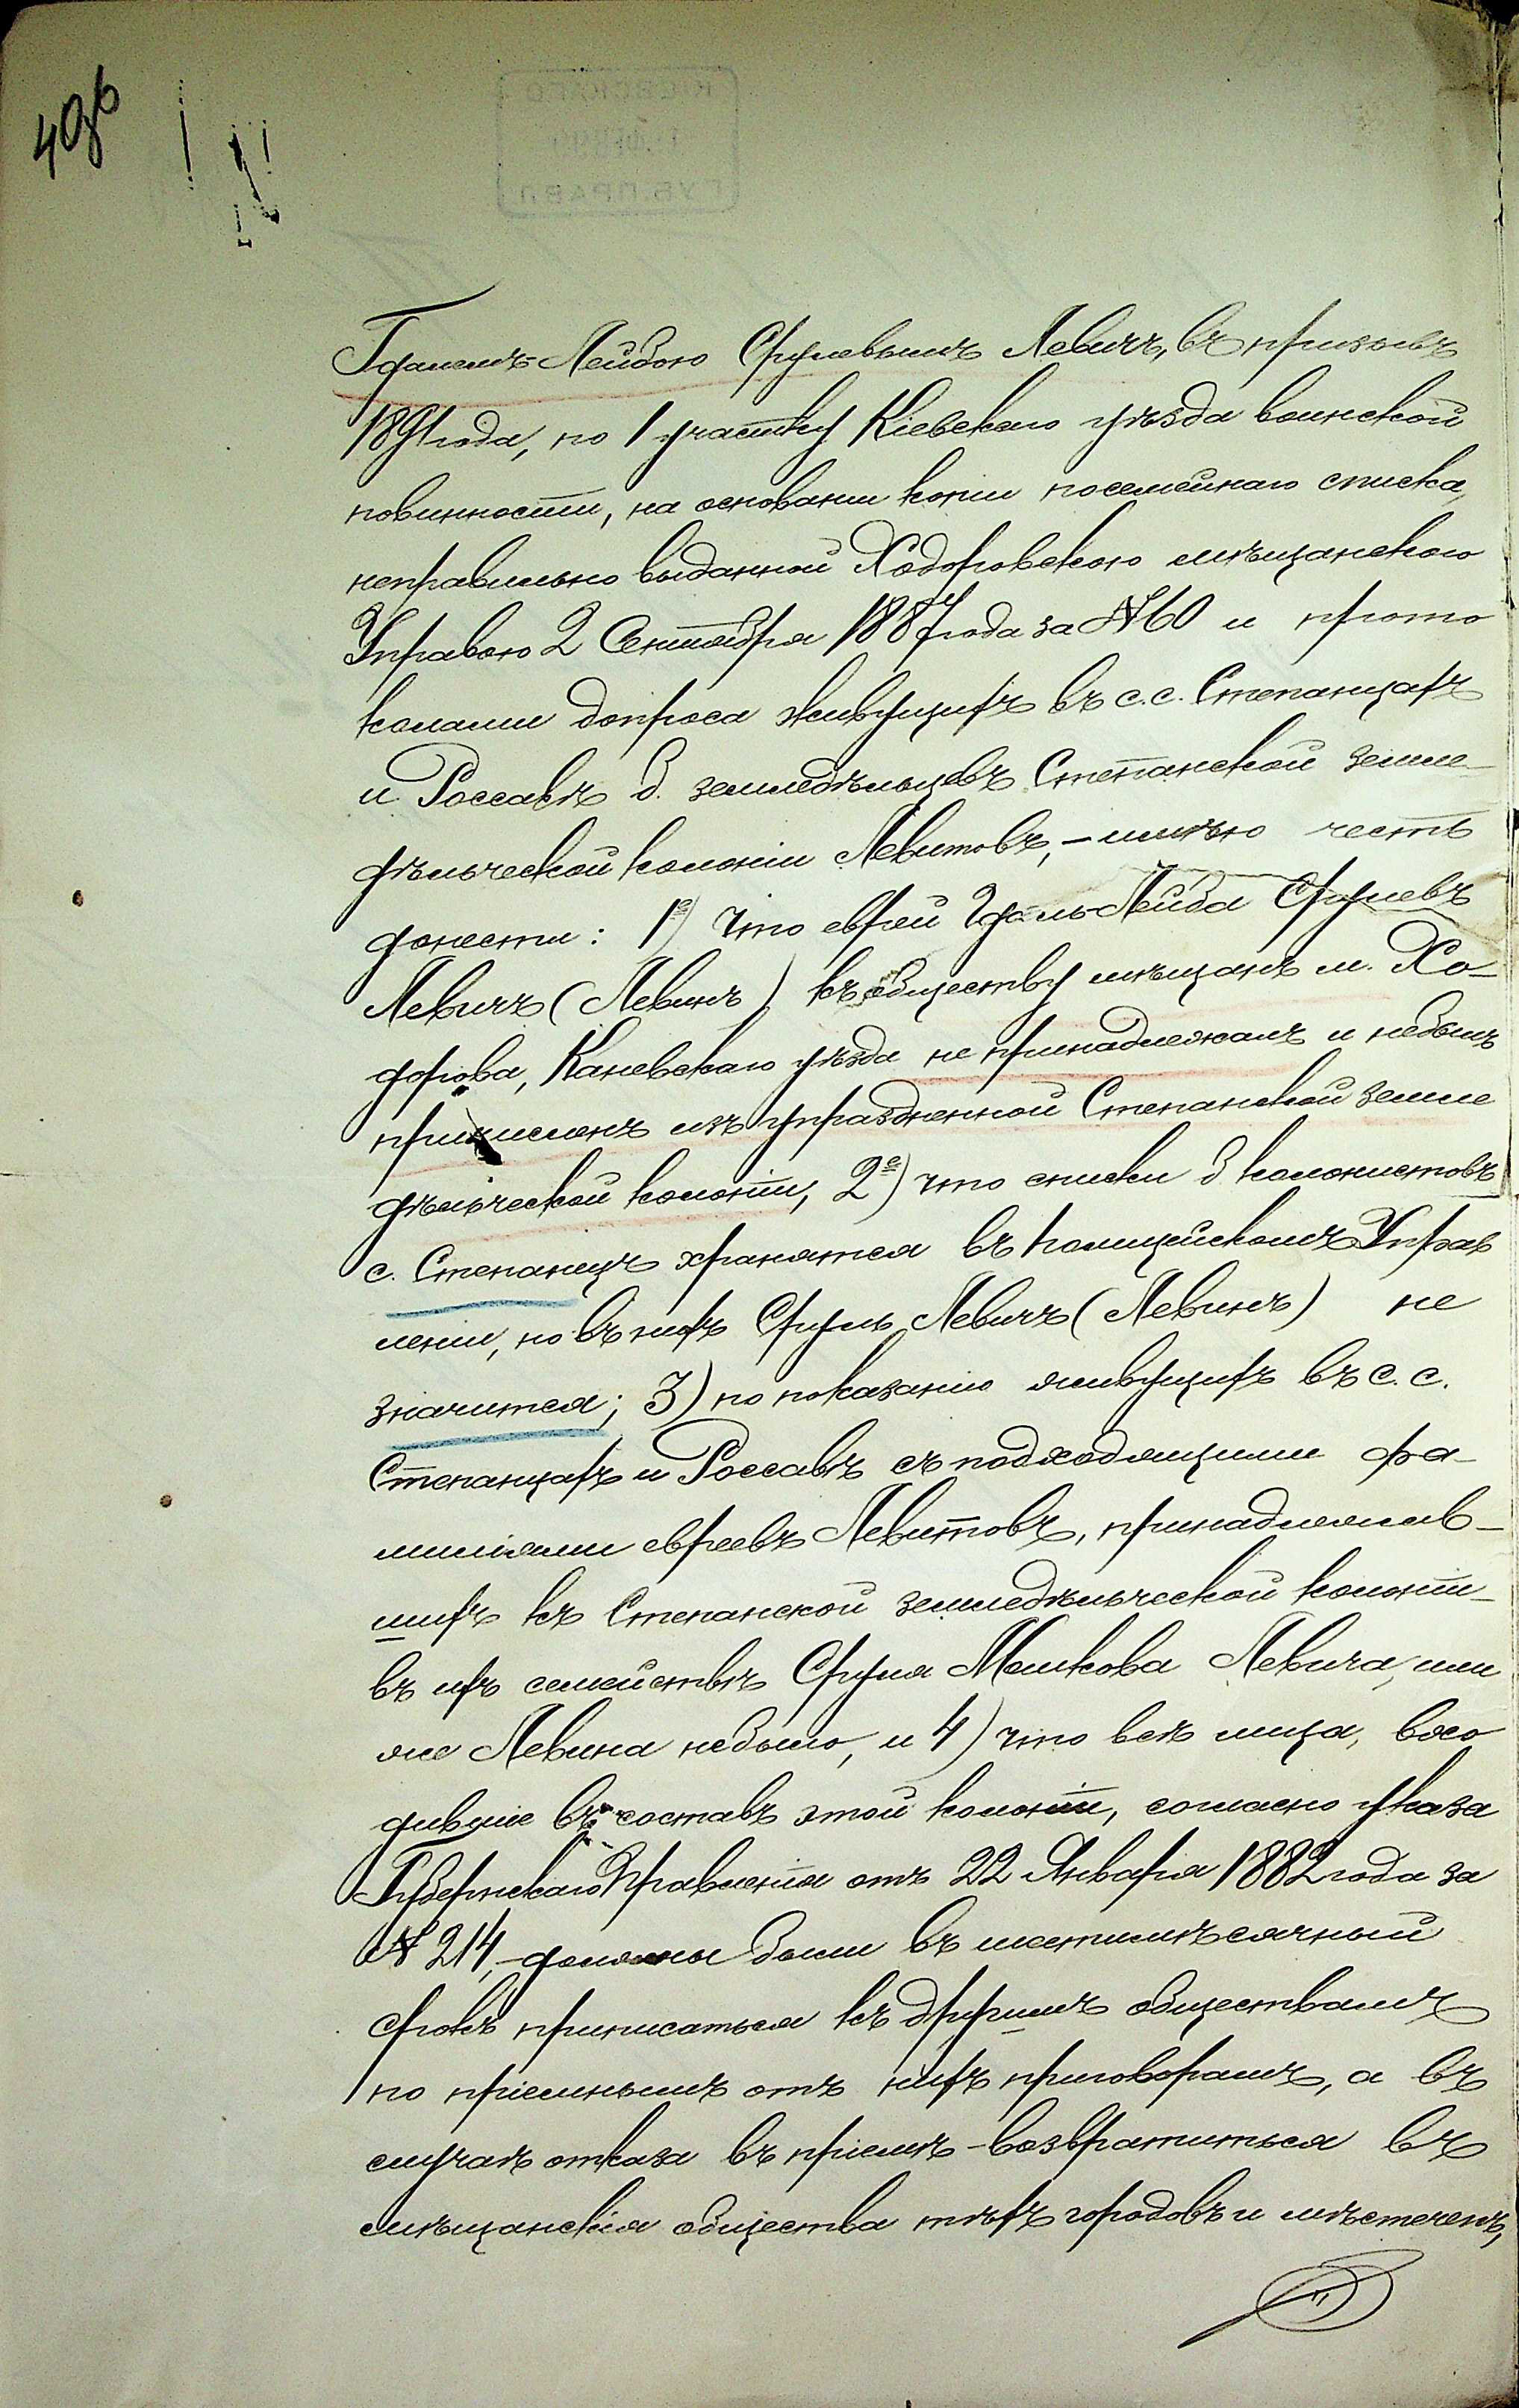 49об
Гдалемъ-Лейбою Сруловымъ Левичъ, въ призывъ
1891 года, по 1 участку Кіевскаго уѣзда воинской
повинности, на основаніи копіи посемейнаго списка,
неправильно выданной Ходоровскою мѣщанскою
Управою 2 Сентября 1887 года за № 60 и прото
колами допроса живущихъ въ с.с. Степанцахъ
и Россавѣ б. земледѣльцевъ Степанской земле-
дѣльческой колоніи Левитовъ, - имѣю честь
донести: 1е) что еврей Гдаль-Лейба Срулевъ
Левичъ (Левинъ) къ обществу мѣщанъ м. Хо-
дорова, Каневскаго уѣзда не принадлежалъ и небылъ
причисленъ изъ упраздненной Степанской земле
дѣльческой колоніи, 2е) что списки б колонистовъ
с. Степанецъ хранятся въ Полицейскомъ Управ
леніи, но въ нихъ Сруль Левичъ (Левинъ) не
значится; 3) по показанію живущихъ въ с. с.
Степанцахъ и Россавѣ съ подходящими фа-
миліями евреевъ Левитовъ, принадлежав-
шихъ къ Степанской земледѣльческой колоніи -
въ ихъ семействѣ Сруля Мошкова Левича, или
же Левина небыло, и 4) что всѣ лица, вхо
дившіе въ составъ этой колоніи, согласно указа
Губернскаго Правленія отъ 22 Января 1882 года за
№ 214, - должны были въ шестимѣсячный
срокъ приписаться къ другимъ обществамъ
по пріемнымъ отъ нихъ приговорамъ, а въ
случаѣ отказа въ пріемѣ - возвратиться въ
мѣщанскія общества тѣхъ городовъ и мѣстечекъ,